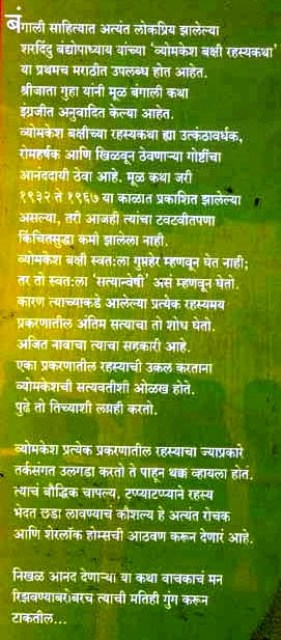 बंगाली साहित्यात अत्यंत लोकप्रिय झालेल्या
शरदिंदु बंद्योपाध्याय यांच्या 'व्योमकेश बक्षी रहस्यकथा'
या प्रथमच मराठीत उपलब्ध होत आहेत.
श्रीजाता गुहा यांनी मूळ बंगाली कथा
इंग्रजीत अनुवादित केल्या आहेत.
व्योमकेश बक्षीच्या रहस्यकथा ह्या उत्कंठावर्धक,
रोमहर्षक आणि खिळवून ठेवणाऱ्या गोष्टींचा
आनंददायी ठेवा आहे. मूळ कथा जरी
१९३२ ते १९६७ या काळात प्रकाशित झालेल्या
असल्या, तरी आजही त्यांचा टवटवीतपणा
किंचितसुद्धा कमी झालेला नाही.
व्योमकेश बक्षी स्वतःला गुप्तहेर म्हणवून घेत नाही;
तर तो स्वतःला 'सत्यान्वेषी' असं म्हणवून घेतो.
कारण त्याच्याकडे आलेल्या प्रत्येक रहस्यमय
प्रकरणातील अंतिम सत्याचा तो शोध घेतो.
अजित नावाचा त्याचा सहकारी आहे.
एका प्रकरणातील रहस्याची उकल करताना
व्योमकेशची सत्यवतीशी ओळख होते.
पुढे तो तिच्याशी लग्नही करतो.
व्योमकेश प्रत्येक प्रकरणातील रहस्याचा ज्याप्रकारे
तर्कसंगत उलगडा करतो ते पाहून थक्क व्हायला होतं.
त्याचं बौद्धिक चापल्य, टप्प्याटप्प्याने रहस्य
भेदत छडा लावण्याचं कौशल्य हे अत्यंत रोचक
आणि शेरलॉक होम्सची आठवण करून देणारं आहे.
निखळ आनंद देणाऱ्या या कथा वाचकाचं मन
रिझवण्याबरोबरच त्याची मतिही गुंग करून
टाकतील...